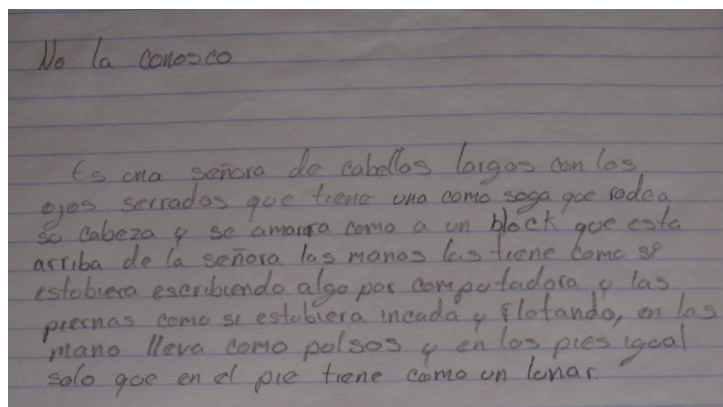 No la conosco
Es una señora de cabellos largos con los
ojos serrados que tiene una como soga que rodea
su cabeza y se amarra como a un block que esta
arriba de la señora las manos las tiene como si
estubiera escribiendo algo por computadora y las
piernas como si estubiera incada y flotando, en las
mano lleva como pulsos y en los pies igual
solo que en el pie tiene como un lunar.